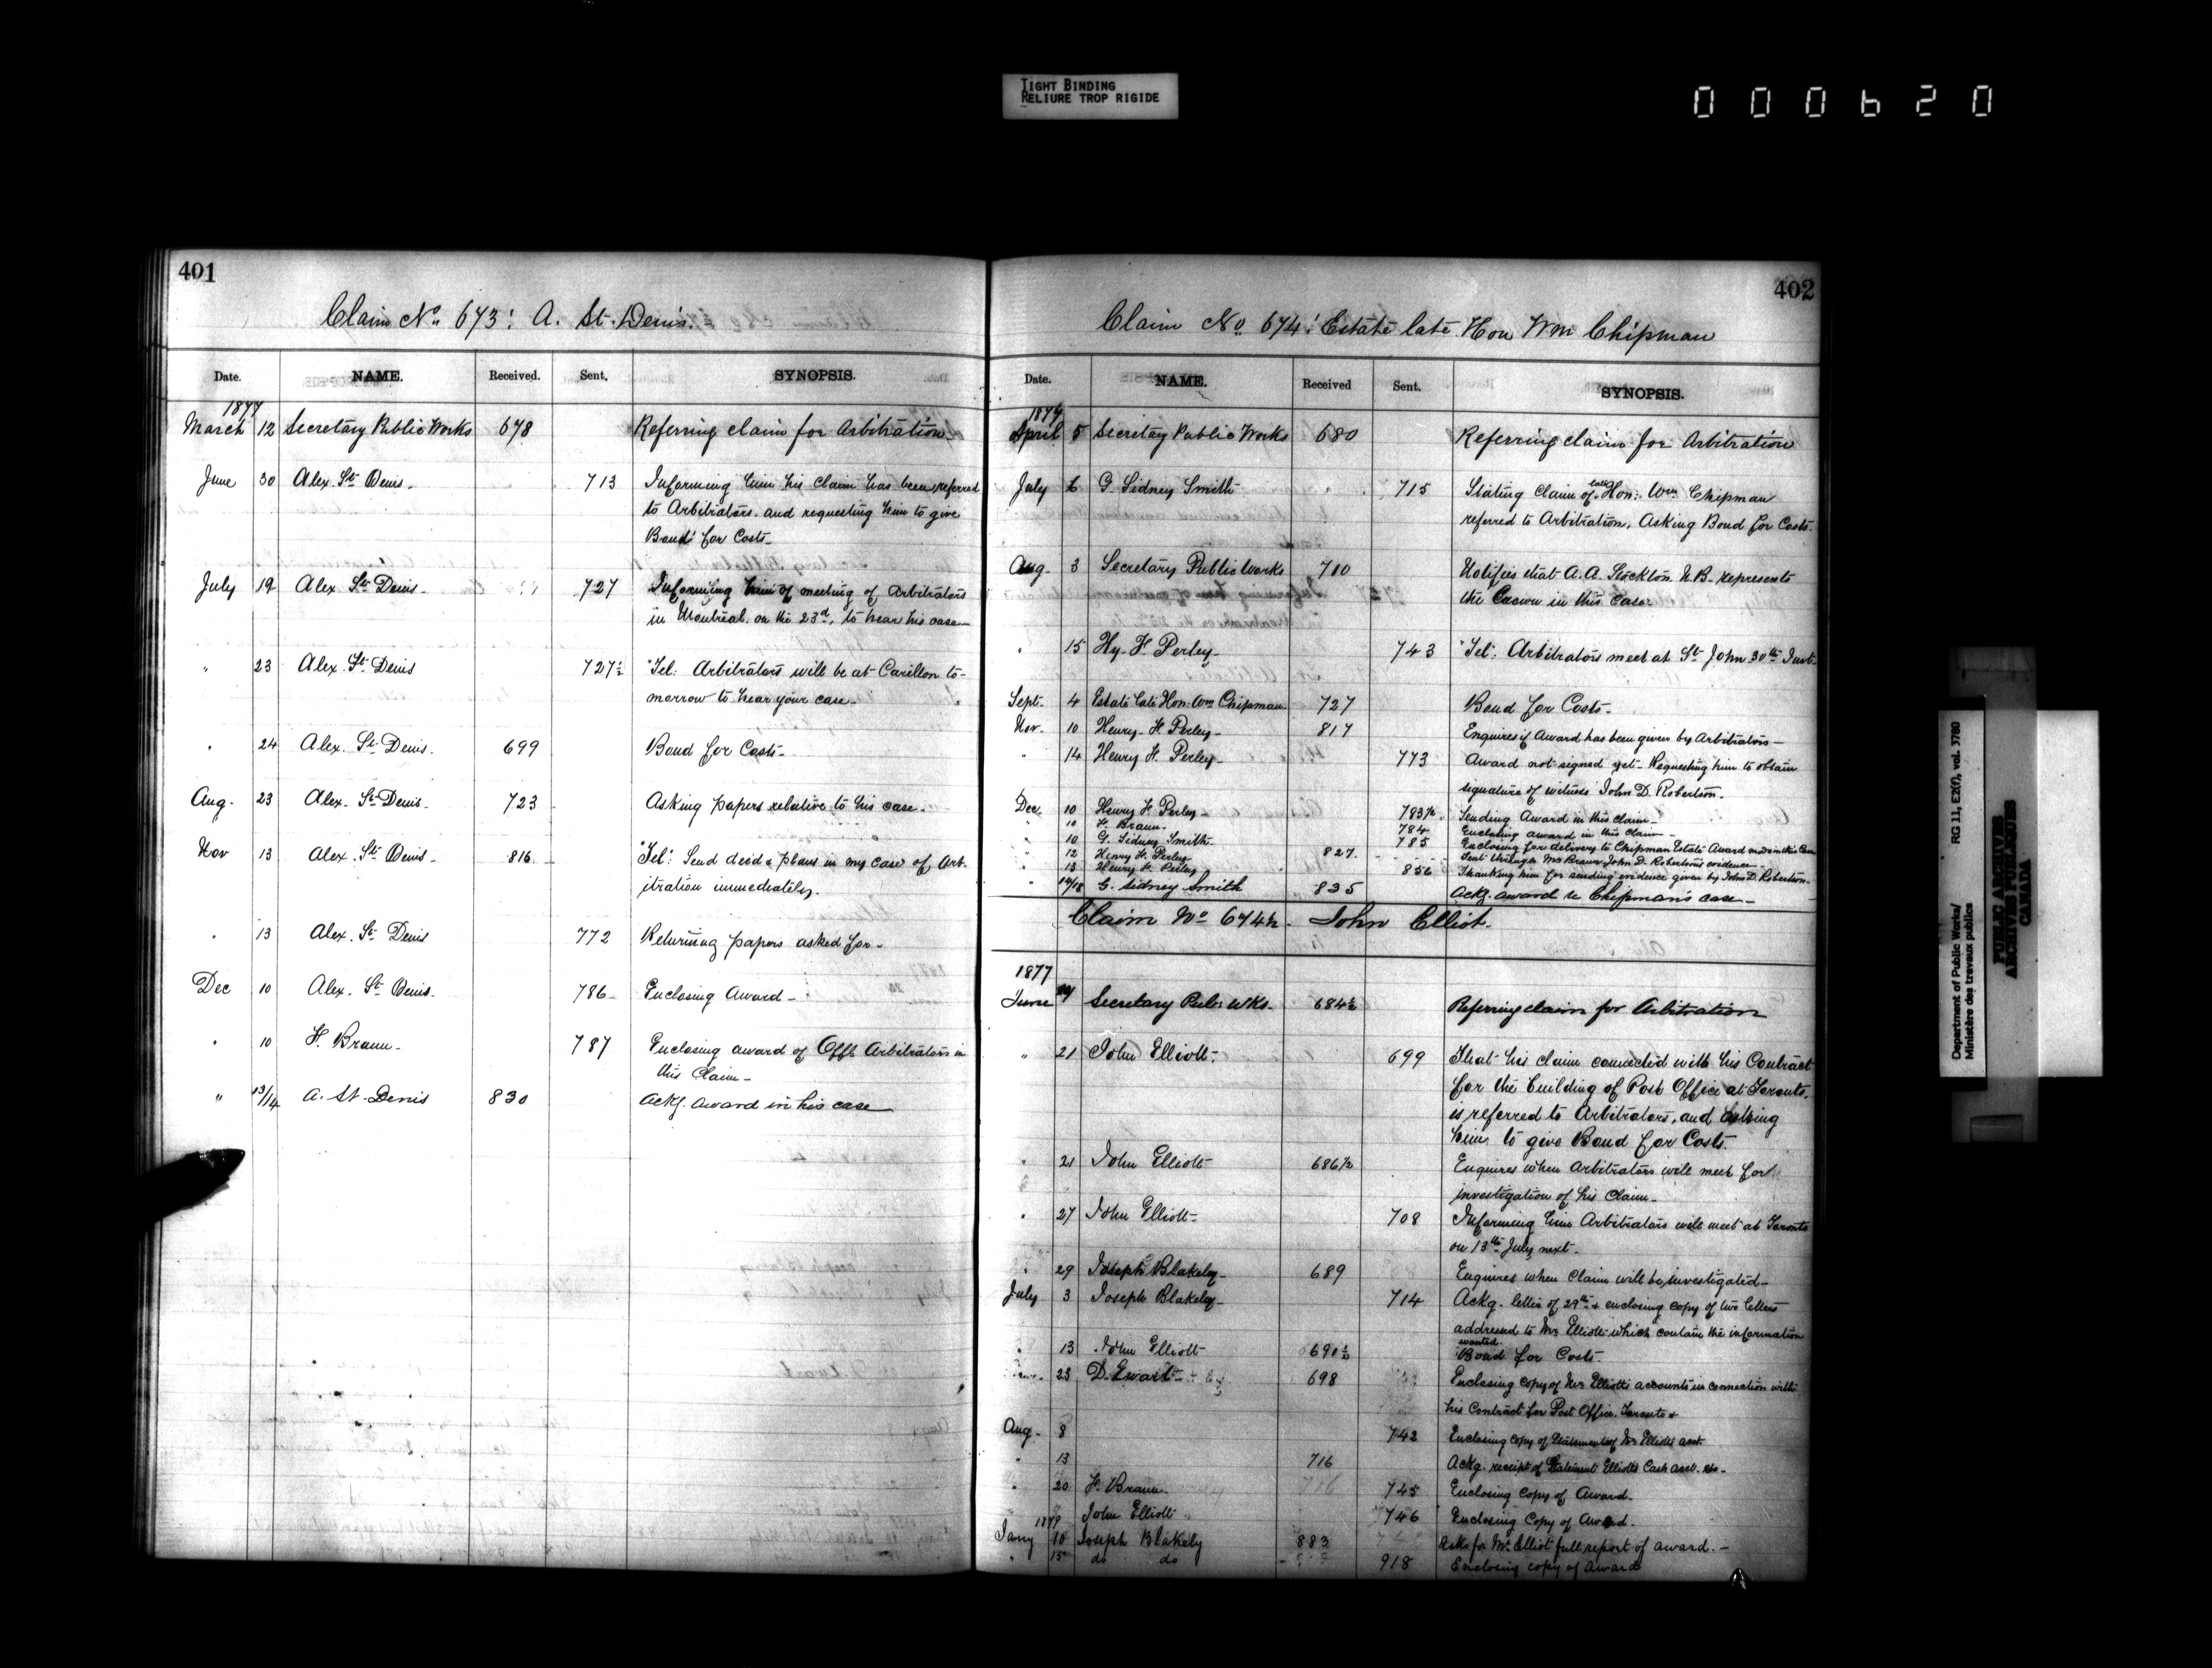 TIGHT BINDING
RELIURE TROP RIGIDE
000620
401
Claim No. 673: A. St. Denis.
Date. NAME. Received. Sent. SYNOPSIS.
1877
March 12 Secretary Public Works 678 Referring claim for Arbitration
June 30 Alex. St. Denis. 713 Informing him his claim has been referred
to Arbitrators. and requesting him to give
Bond for Costs-
July 19 Alex St. Denis. 727 Informing him of meeting of Arbitrators
in Montreal. on the 23d, to hear his case-
" 23 Alex. St. Denis 727½ "Tel: Arbitrators will be at Carillon to-
morrow to hear your case-
" 24 Alex. St. Denis. 699 Bond for Costs-
Aug. 23 Alex. St. Denis. 723 Asking papers relative to his case-
Nov 13 Alex. St. Denis- 816 "Tel": Send deed & plans in my case of Arb-
itration immediately.
" 13 Alex. St. Denis 772 Returning papers asked for-
Dec 10 Alex. St. Denis. 786 Enclosing Award-
" 10 F. Braun- 787 Enclosing award of Offl. Arbitrators in
this Claim-
" 13/14 A. St. Denis 830 Ackg. award in his case
402
Claim No. 674: Estate late Hon Wm Chipman
Date. NAME. Received Sent. SYNOPSIS.
1877
April 5 Secretary Public Works 680 Referring claim for Arbitration
July 6 G. Sidney Smith 715 Stating Claim of late Hon: Wm. Chipman
referred to Arbitration, Asking Bond for Costs.
Aug. 3 Secretary Public Works 710 Notifies that A. A. Stockton N.B. represents
the Crown in this Case.
" 15 Hy. F. Perley- 743 "Tel": Arbitrators meet at St. John 30th Inst-
Sept. 4 Estate late Hon: Wm Chipman. 727 Bond for Costs-
Nov. 10 Henry. F. Perley- 817 Enquires if Award has been given by Arbitrators-
" 14 Henry F. Perley- 773 Award not signed yet- Requesting him to obtain
signature of witness John D. Robertson-
Dec. 10 Henry F. Perley- 783½ Sending Award in this claim-
" 10 F. Braun. 784 Enclosing award in this Claim-
" 10 G. Sidney Smith- 785 Enclosing for delivery to Chipman Estate Award in this Case
" 12 Henry F. Perley 827 Sent through Mr Braun John D. Robertson's evidence-
" 13 Henry F. Perley 856 Thanking him for sending evidence given by John D. Robertson-
" 14/18 G. Sidney Smith 835 Ackg. award re Chipman's case-
Claim No 674½. John Elliot.
1877
June Secretary Pub: Wks. 684½ Referring claim for Arbitration
" 21 John Elliott- 699 That his claim connected with his Contract
for the building of Post Office at Toronto,
is referred to Arbitrators, and asking
him to give Bond for Costs.
" 21 John Elliott 686½ Enquires when Arbitrators will meet for
investigation of his Claim-
" 27 John Elliott- 708 Informing him Arbitrators will meet at Toronto
on 13th July next-
" 29 Joseph Blakeley- 689 Enquires when Claim will be investigated-
July 3 Joseph Blakeley- 714 Ackg. letter of 29th & enclosing copy of two letters
addressed to Mr. Elliott which contain the information
wanted.
" 13 John Elliott 690½ Bond for Costs.
23 D. Ewart- 698 Enclosing copy of Mr Elliotts accounts in connection with
his Contract for Post Office, Toronto &
Aug- 8 742 Enclosing copy of Statement of Mr Elliotts acct.
" 13 716 Ackg. receipt of Statement Elliotts Cash acct. &c-
" 20 F. Braun- 745 Enclosing Copy of Award-
John Elliott 746 Enclosing Copy of Award.
1879
Jany 10 Joseph Blakely 883 Asks for Mr. Elliot full report of award.-
" 15 do do 918 Enclosing copy of Award
Department of Public Works/ RG 11, E2(f), vol. 3780
Ministère des travaux publics
PUBLIC ARCHIVES
ARCHIVES PUBLIQUES
CANADA